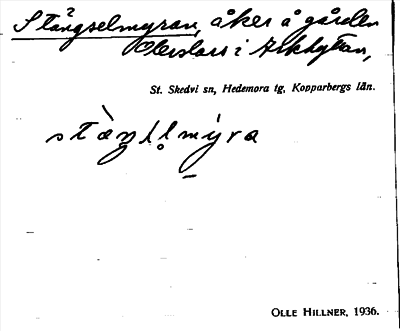 Stängselmyran, åker å gården
Olerslars i Askhyttan,
St. Skedvi sn, Hedemora tg, Kopparbergs län.
OLLE HILLNER, 1936.